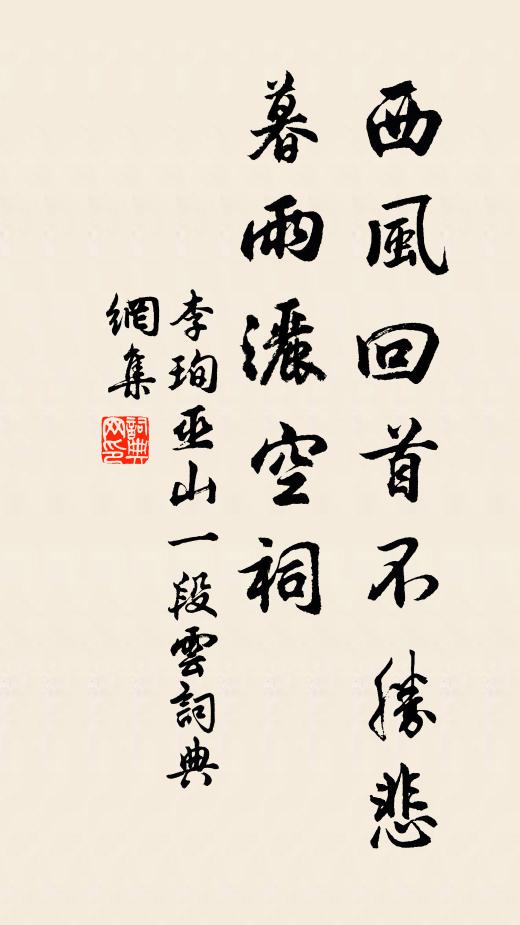 西風回首不勝悲
暮雨灑空祠
李珣巫山一段雲詞典
網集
詞典網印